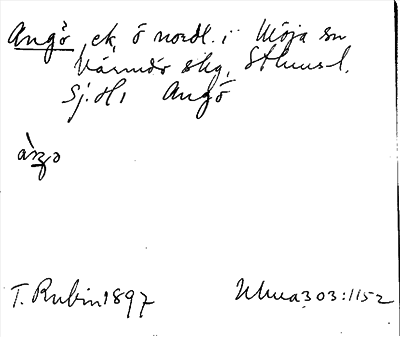 Angö, ek, ö nordl. i Möja sn
Värmdö skg, Sthms l.
Sj. H, Angö
T. Rubin 1897
Uhua 303:1152